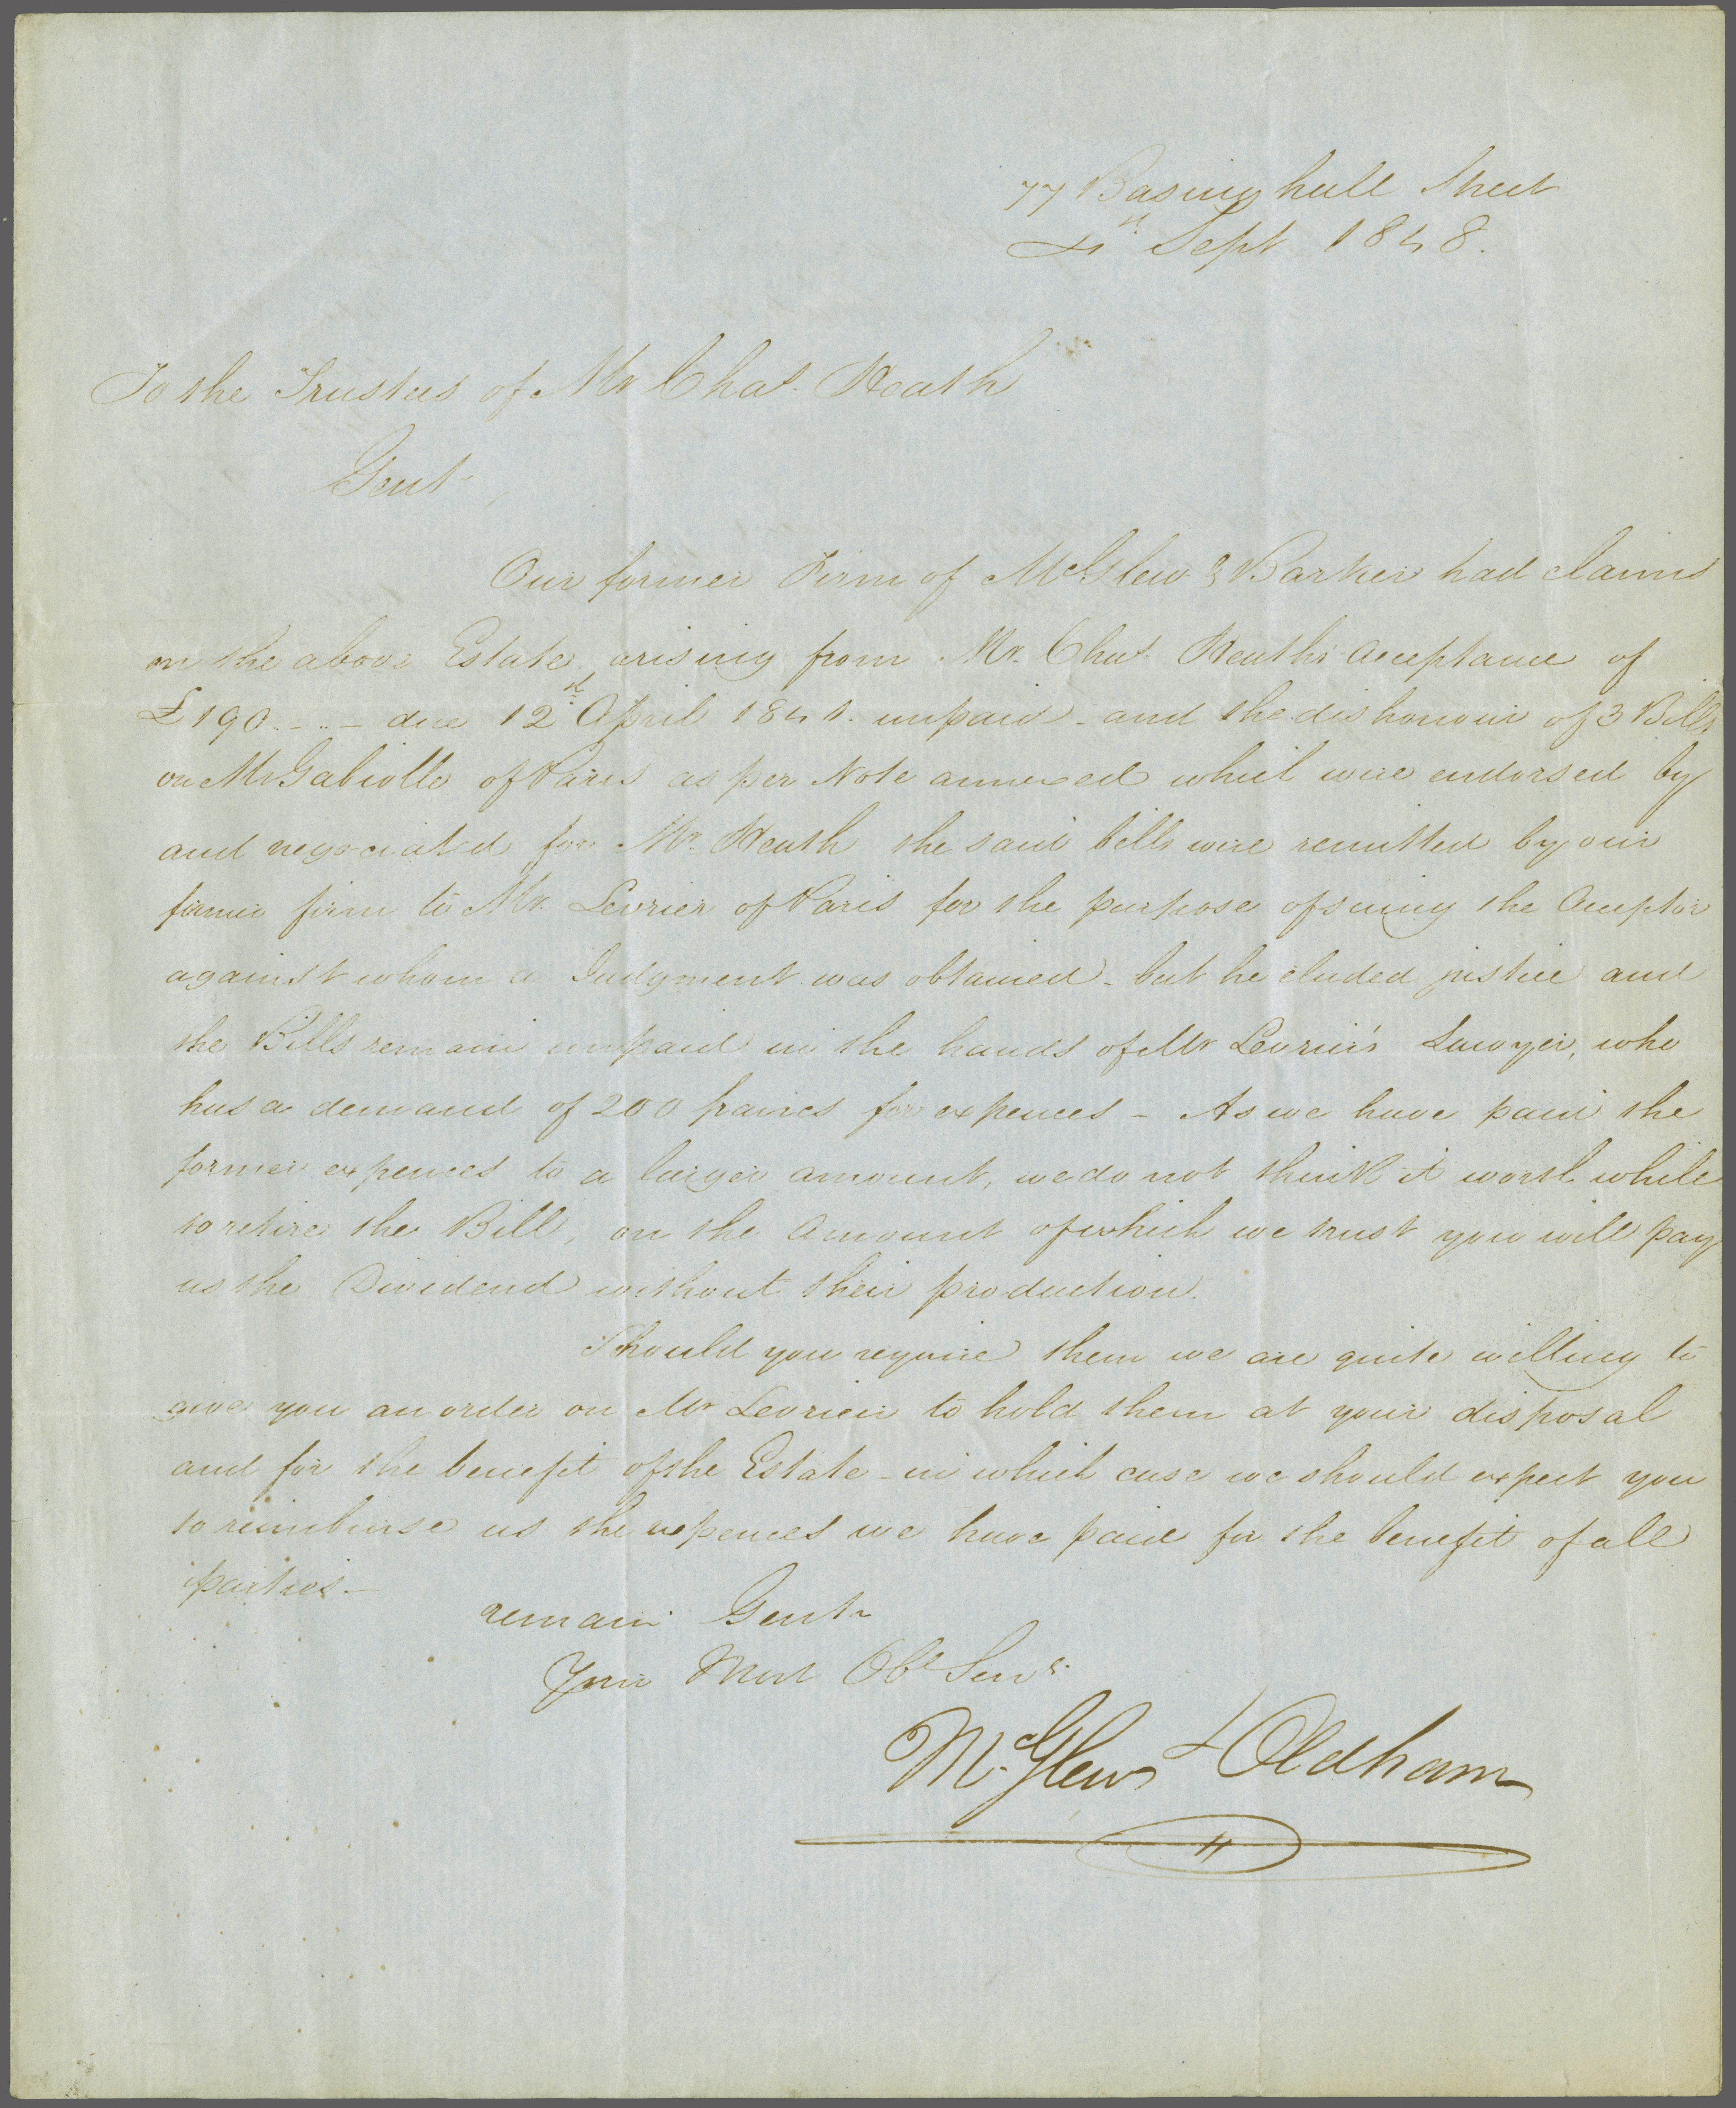 77 Basinghall Street
4th Sept 1848.
To the Trustees of Mr Chas. Heath
Gent
Our former Firm of McGlew & Barker had claims
on the above Estate arising from Mr. Chas. Heath's acceptance of
£190 .. - due 12th April 1841. unpaid - and the dishonour of 3 Bills
on Mr Gabiolle of Paris as per Note annexed which were endorsed by
and negociated for Mr. Heath the said bills were remitted by our
former firm to Mr. Levrier of Paris for the purpose of suing the Acceptor
against whom a Judgment was obtained - but he eluded justice and
the Bills remain unpaid in the hands of Mr Levrier's Lawyer, who
has a demand of 200 francs for expences - As we have paid the
former expences to a larger amount, we do not think it worth while
to retire the Bill, on the amount of which we trust you will pay
us the Dividend without their production.
Should you require them we are quite willing to
give you an order on Mr Levrier to hold them at your disposal
and for the benefit of the Estate - in which case we should expect you
to reimburse us the expences we have paid for the benefit of all
parties. -
remain Gent
Your Most Obt Servs.
McGlew & Oldham